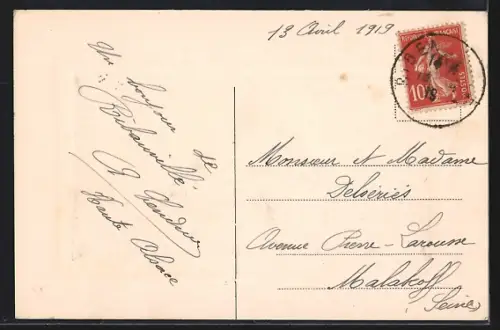 13 Avril 1919
10
Un bonjour de
Ribeauvillé
Haute Alsace
Monsieur et Madame
Delsériés
Avenue Pierre-Larousse
Malakoff
(Seine)